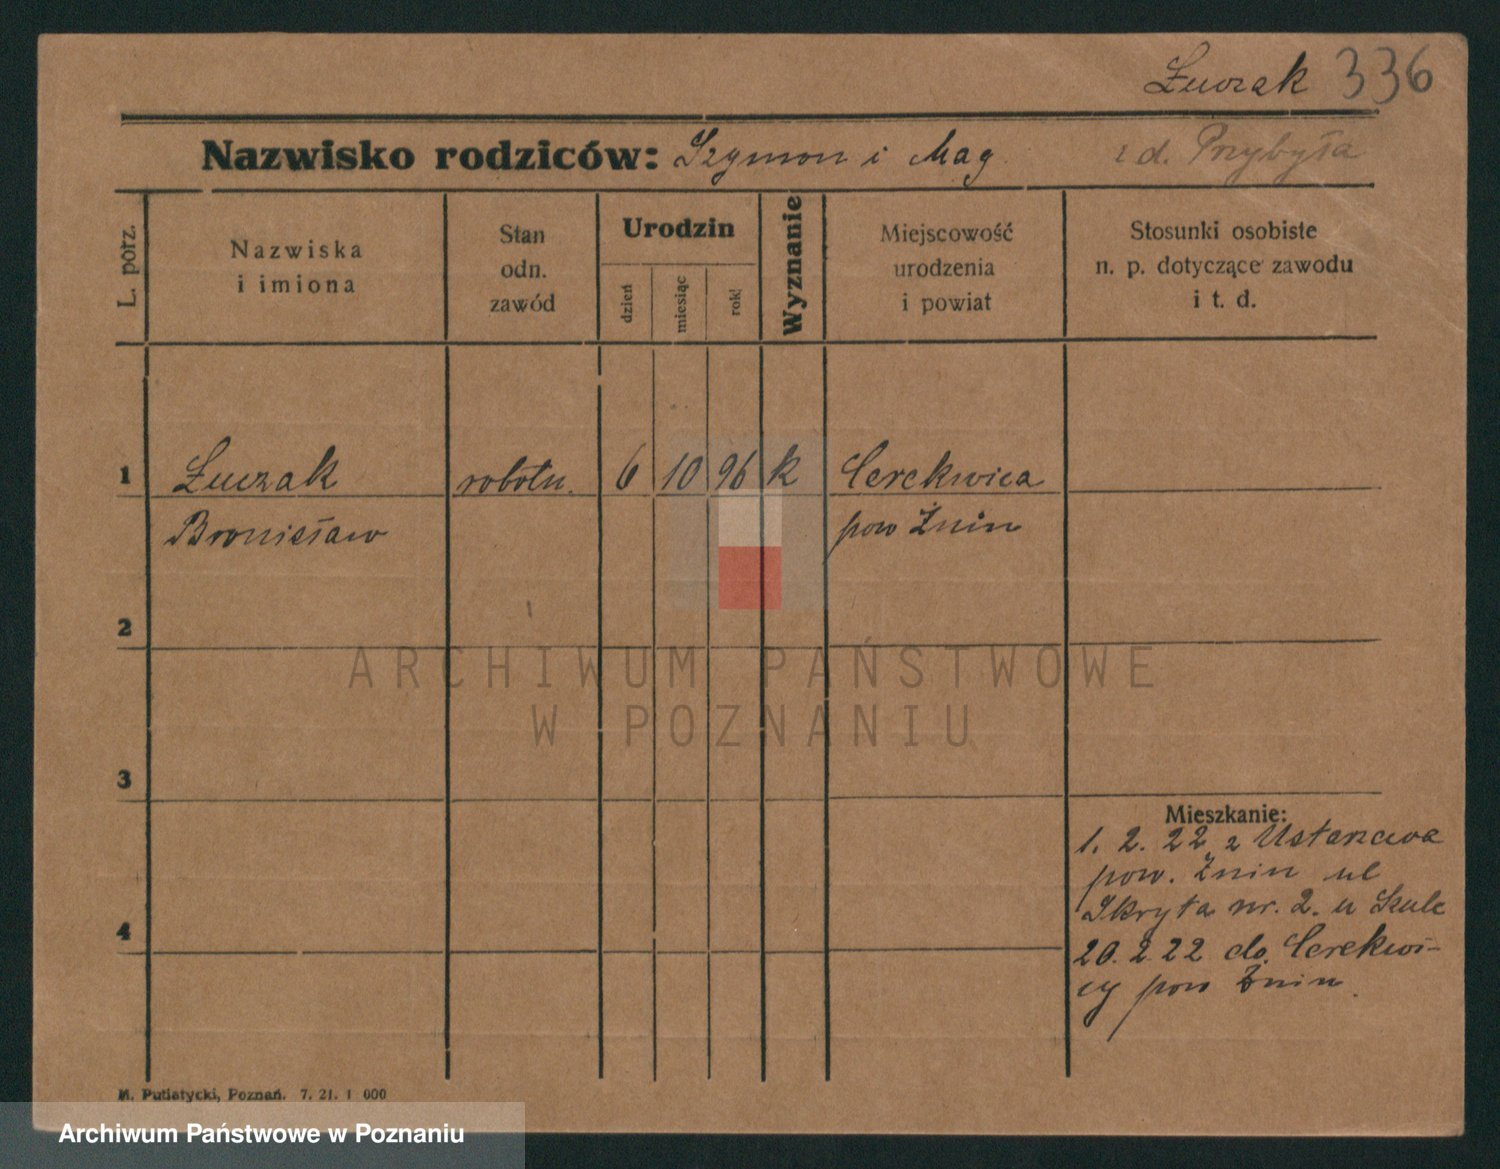 Łuczak 336
Nazwisko rodziców: Szymon i Mag z d. Przybyła
L. porz.
Nazwiska
i imiona
Stan
odn.
zawód
Urodzin
dzień
miesiąc
rok
Wyznanie
Miejscowość
urodzenia
i powiat
Stosunki osobiste
n. p. dotyczące zawodu
i t. d.
1 Łuczak robotn. 6 10 96 k Cerekwica
Bronisław pow Żnin
2
ARCHIWUM PAŃSTWOWE
W POZNANIU
3
Mieszkanie:
1. 2. 22 z Ustaszewa
pow. Żnin ul
Skryta nr. 2. u Szulc
4
20. 2 22 do Cerekwi-
cy pow Żnin.
M. Putiatycki, Poznań. 7. 21. 1 000
Archiwum Państwowe w Poznaniu